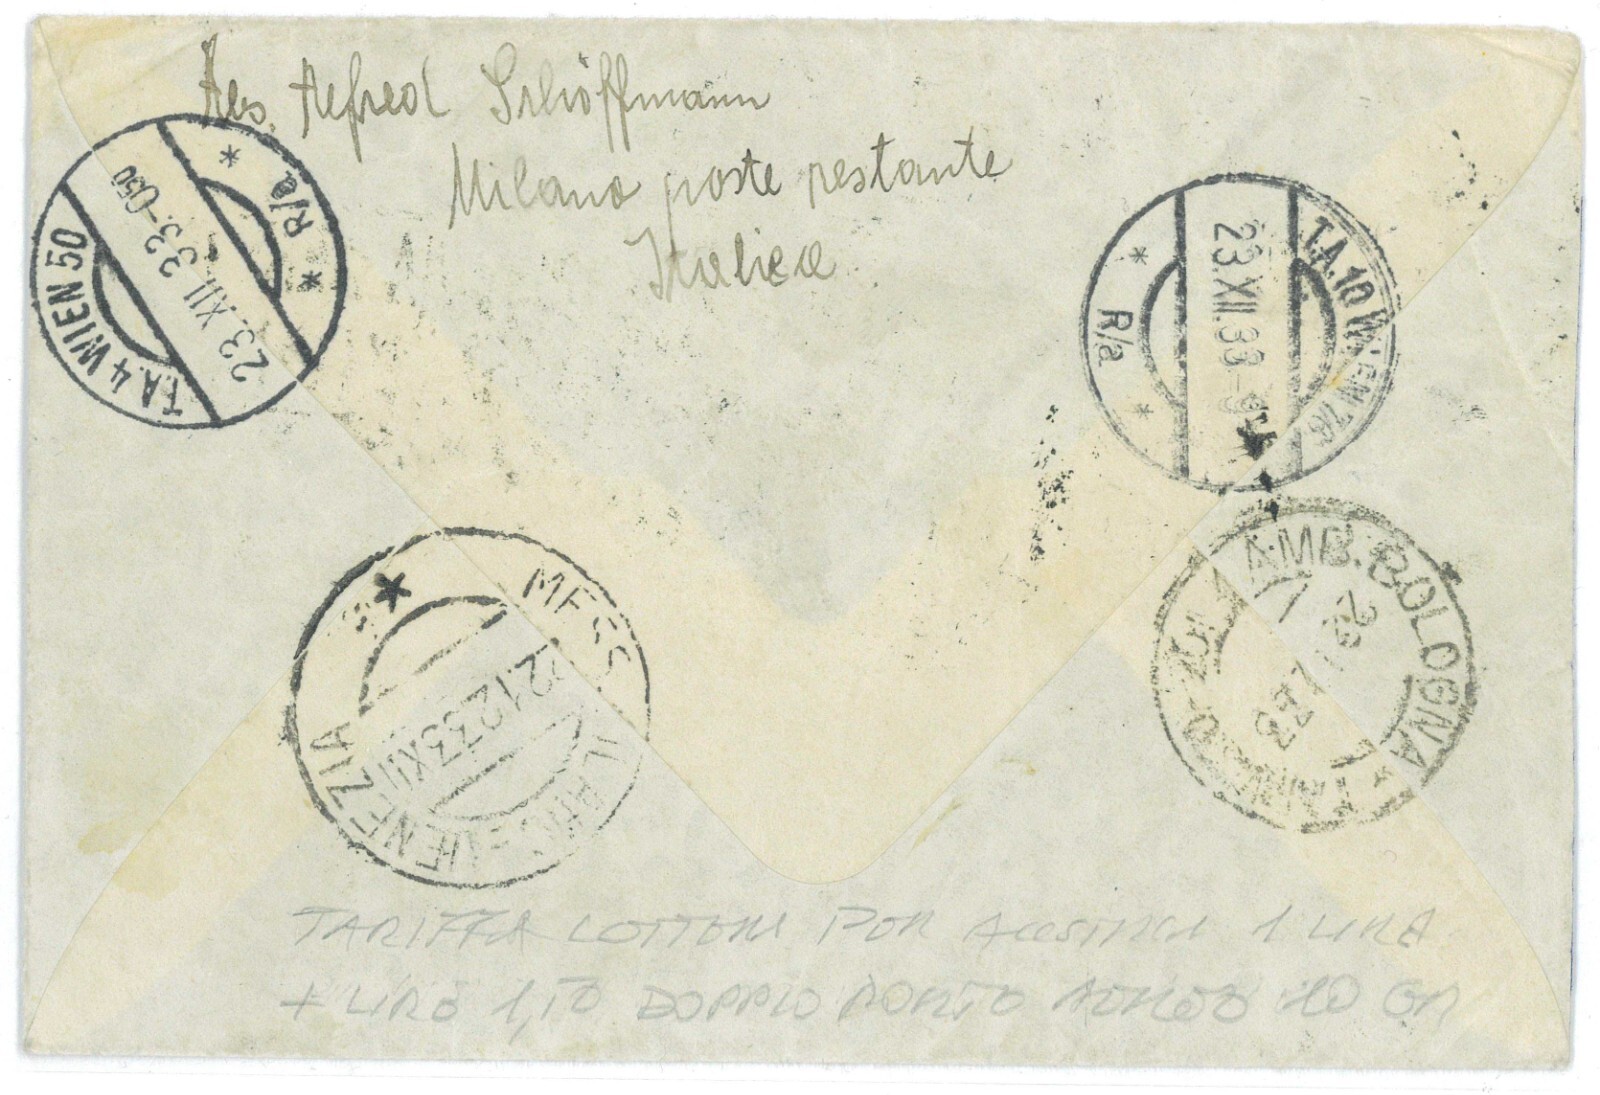 Abs. Alfred Schöffmann
Milano poste restante
Italien
T.A. 4 WIEN 50
23.XII 33.-050
* R/a *
T.A. 10 WIEN 76
23.XII.33
* R/a *
MESS
VENEZIA
22.12.33 XII
AMB. BOLOGNA - TARVISIO
TARIFFA LETTERA PER AUSTRIA 1 LIRA
+ LIRE 1,50 DOPPIO PORTO AEREO 10 GR